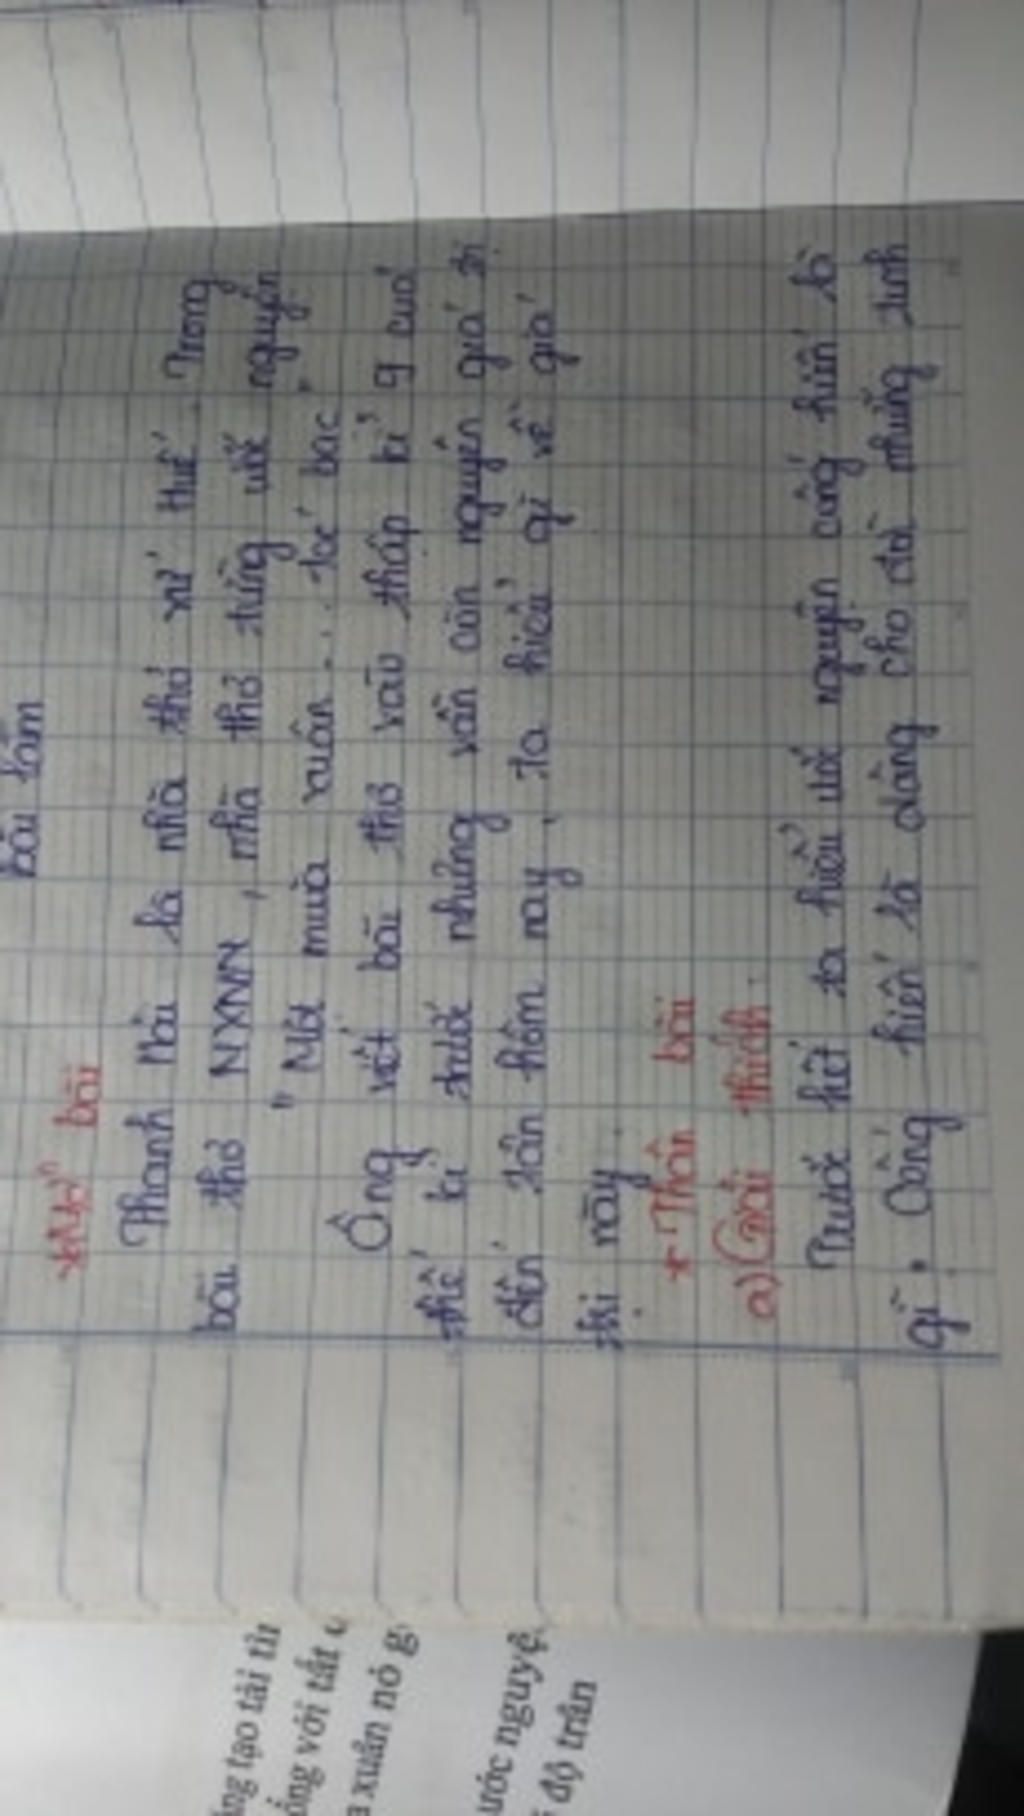 bài làm
* Mở bài
Thanh Hải là nhà thơ xứ Huế. Trong
bài thơ MXNN, nhà thơ từng ước nguyện
" Một mùa xuân ... tóc bạc "
Ông viết bài thơ vào thập kỉ 9 cuả
thế kỉ trước nhưng vẫn còn nguyên giá trị
đến tân hôm nay, ta hiểu gì về giá
trị này
* Thân bài
a) Giải thích.
Trước hết ta hiểu ước nguyện cống hiến là
gì. Cống hiến là dâng cho đời những tinh
ng tạo tài
ống với tất
xuân nó
ước nguyệ
độ trân